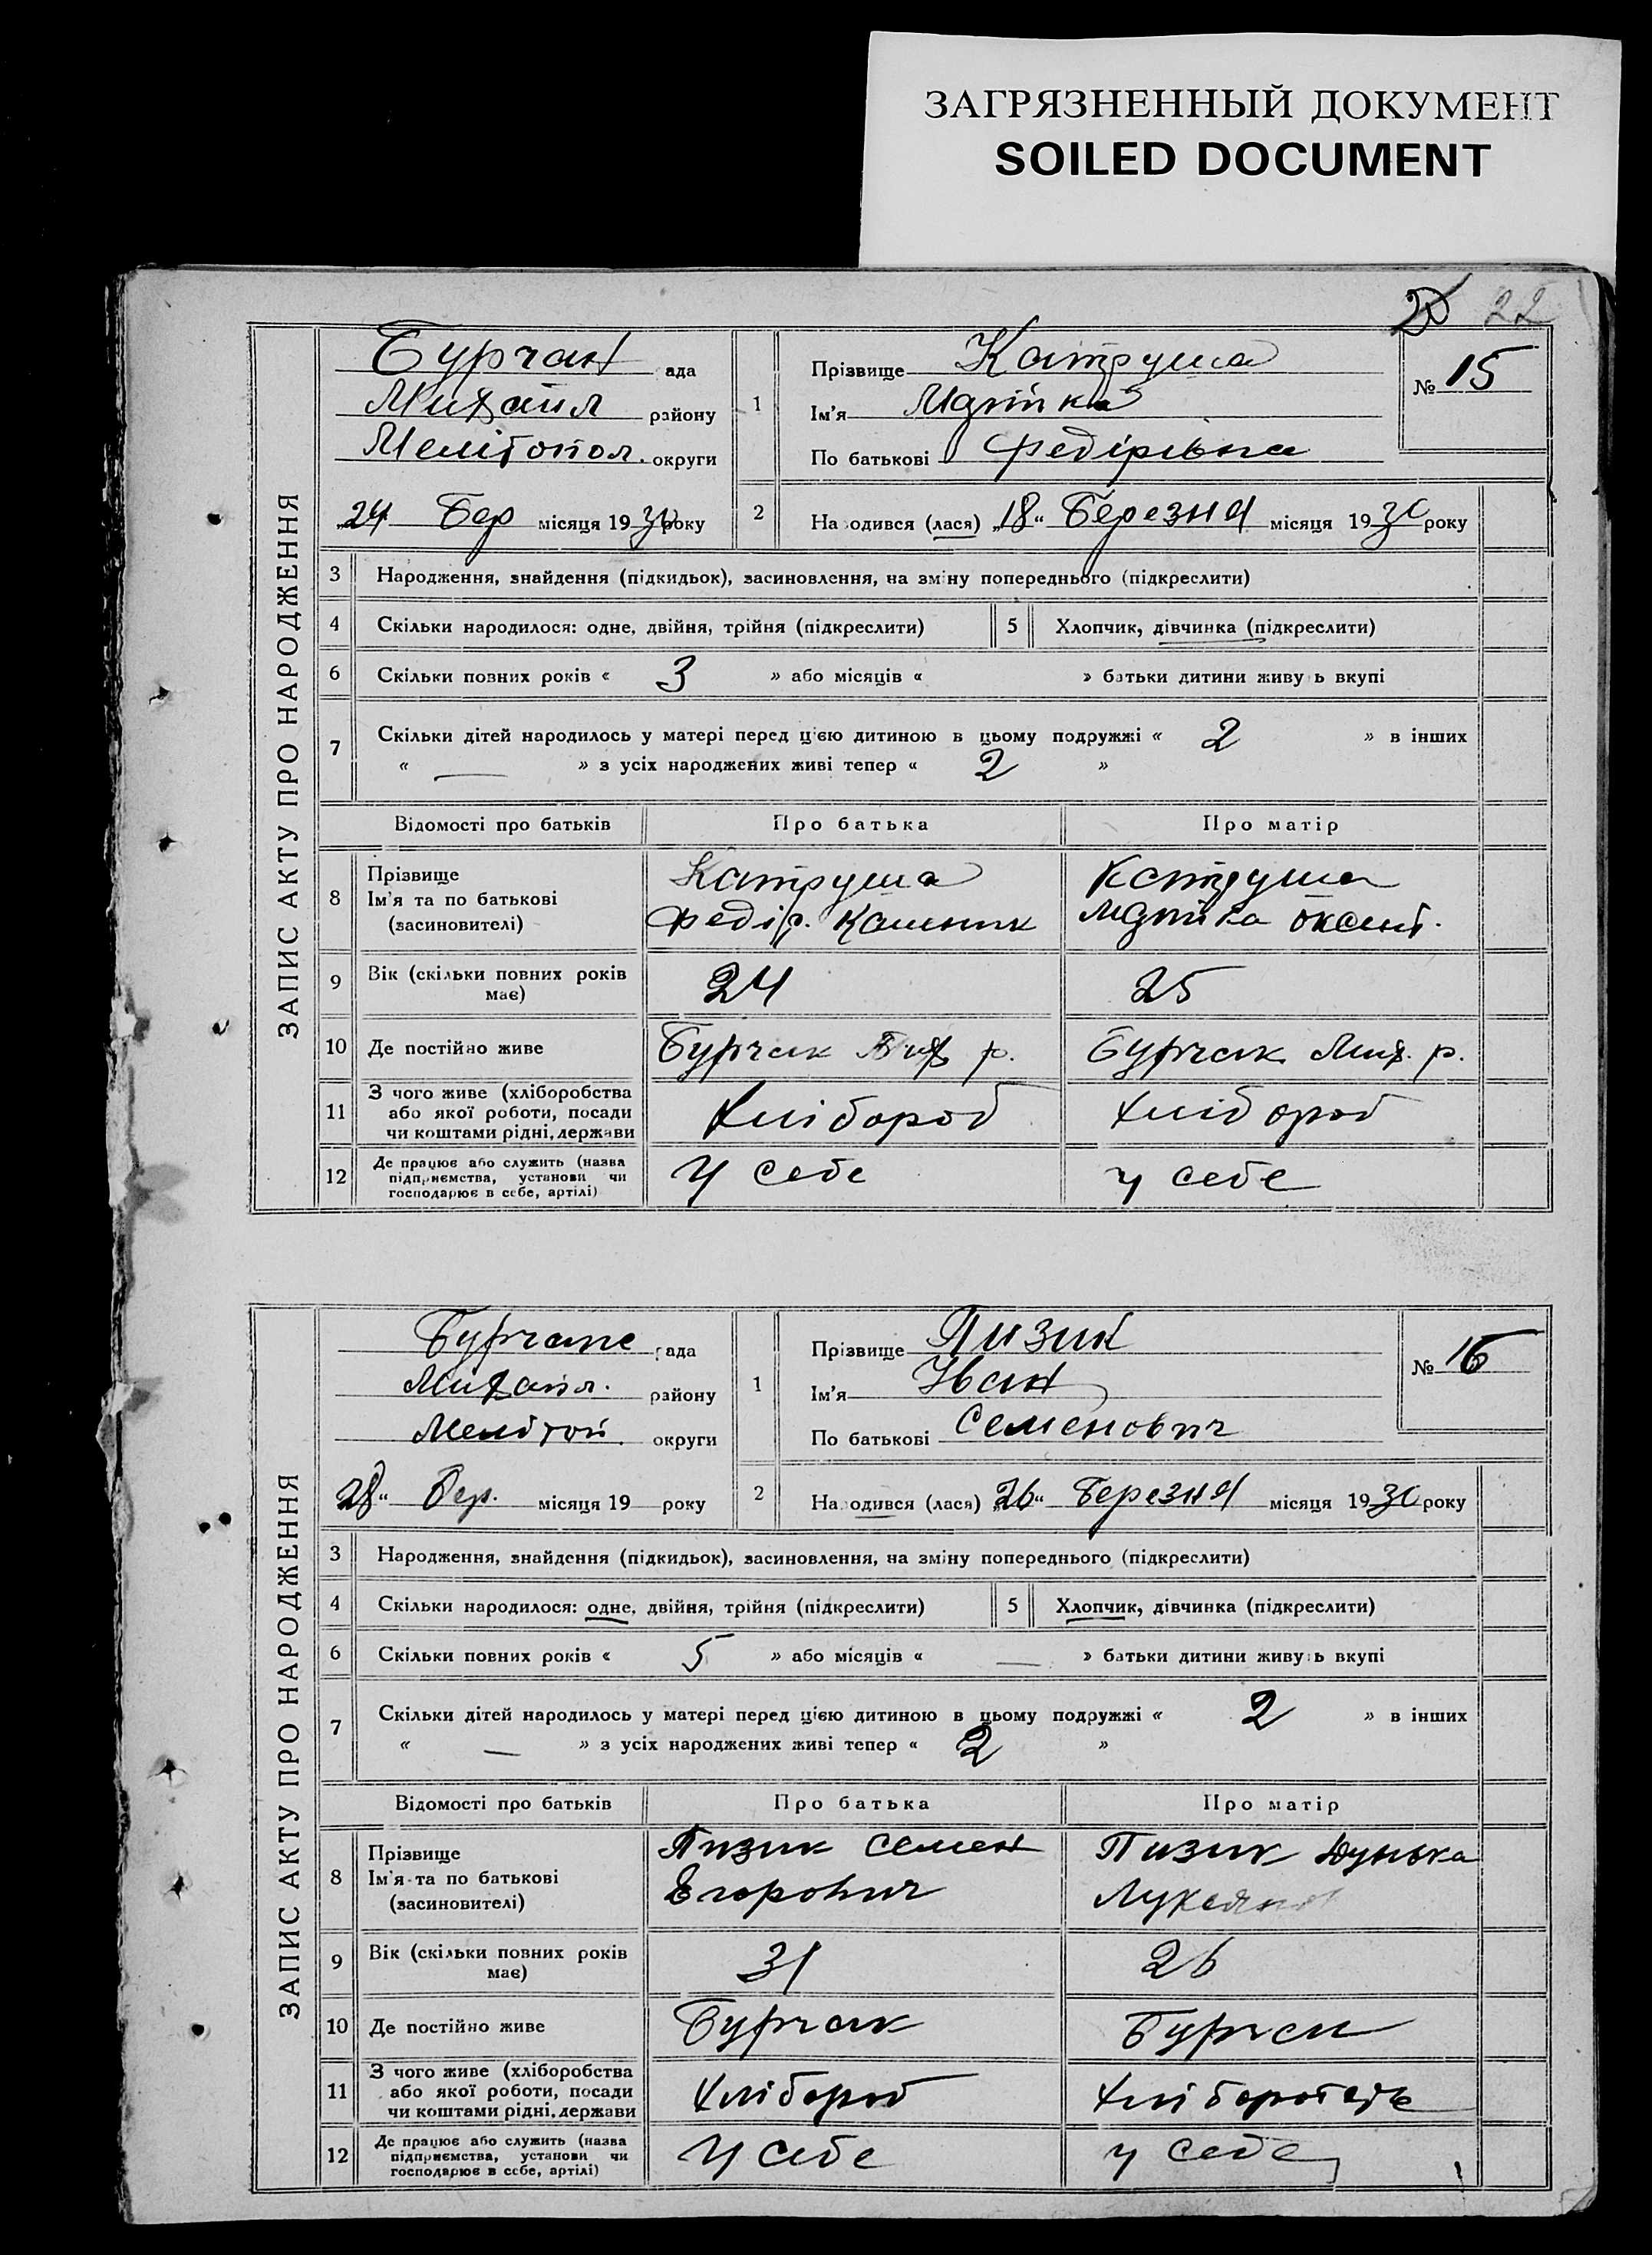 ЗАГРЯЗНЕННЫЙ ДОКУМЕНТ
SOILED DOCUMENT
22
ЗАПИС АКТУ ПРО НАРОДЖЕННЯ
Бурчак рада
Михайл району
Мелітопол. округи
„24 Бер місяця 1930 року
1 Прізвище Катруша
Ім'я
По батькові Федірівна
№ 15
2 Народився (лася) „18“ Березня місяця 1930 року
3 Народження, знайдення (підкидьок), засиновлення, на зміну попереднього (підкреслити)
4 Скільки народилося: одне, двійня, трійня (підкреслити) 5 Хлопчик, дівчинка (підкреслити)
6 Скільки повних років « 3 » або місяців « » батьки дитини живуть вкупі
7 Скільки дітей народилось у матері перед цією дитиною в цьому подружжі « 2 » в інших
« — » з усіх народжених живі тепер « 2 »
Відомості про батьків Про батька Про матір
8 Прізвище Катруша Катруша
Ім'я та по батькові Федір.
(засиновителі)
9 Вік (скільки повних років 24 25
має)
10 Де постійно живе Бурчак Мих р. Бурчак Мих. р.
11 З чого живе (хліборобства
або якої роботи, посади Хлібороб Хлібороб
чи коштами рідні, держави
12 Де працює або служить (назва У себе у себе
підприємства, установи чи
господарює в себе, артілі)
ЗАПИС АКТУ ПРО НАРОДЖЕННЯ
рада
Михайл. району
Меліто округи
28“ Бер. місяця 19 року
1 Прізвище Пизик
Ім'я Иван
По батькові Семенович
№ 16
2 Народився (лася) „26“ Березня місяця 1930 року
3 Народження, знайдення (підкидьок), засиновлення, на зміну попереднього (підкреслити)
4 Скільки народилося: одне, двійня, трійня (підкреслити) 5 Хлопчик, дівчинка (підкреслити)
6 Скільки повних років « 5 » або місяців « — » батьки дитини живуть вкупі
7 Скільки дітей народилось у матері перед цією дитиною в цьому подружжі « 2 » в інших
« — » з усіх народжених живі тепер « 2 »
Відомості про батьків Про батька Про матір
8 Прізвище Пизик Семен Пизик Дунька
Ім'я та по батькові Егорович
(засиновителі)
9 Вік (скільки повних років 31 26
має)
10 Де постійно живе Бурчак Бурчак
11 З чого живе (хліборобства
або якої роботи, посади Хлібороб
чи коштами рідні, держави
12 Де працює або служить (назва У себе у себе
підприємства, установи чи
господарює в себе, артілі)